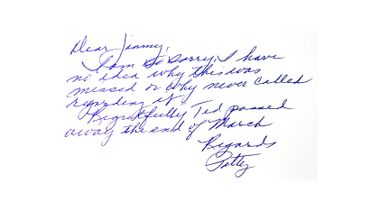 Dear Jimmy,
I am so sorry. I have
no idea why this was
missed or why never called
regarding it
Regretfully Ted passed
away the end of March
Regards
Patty